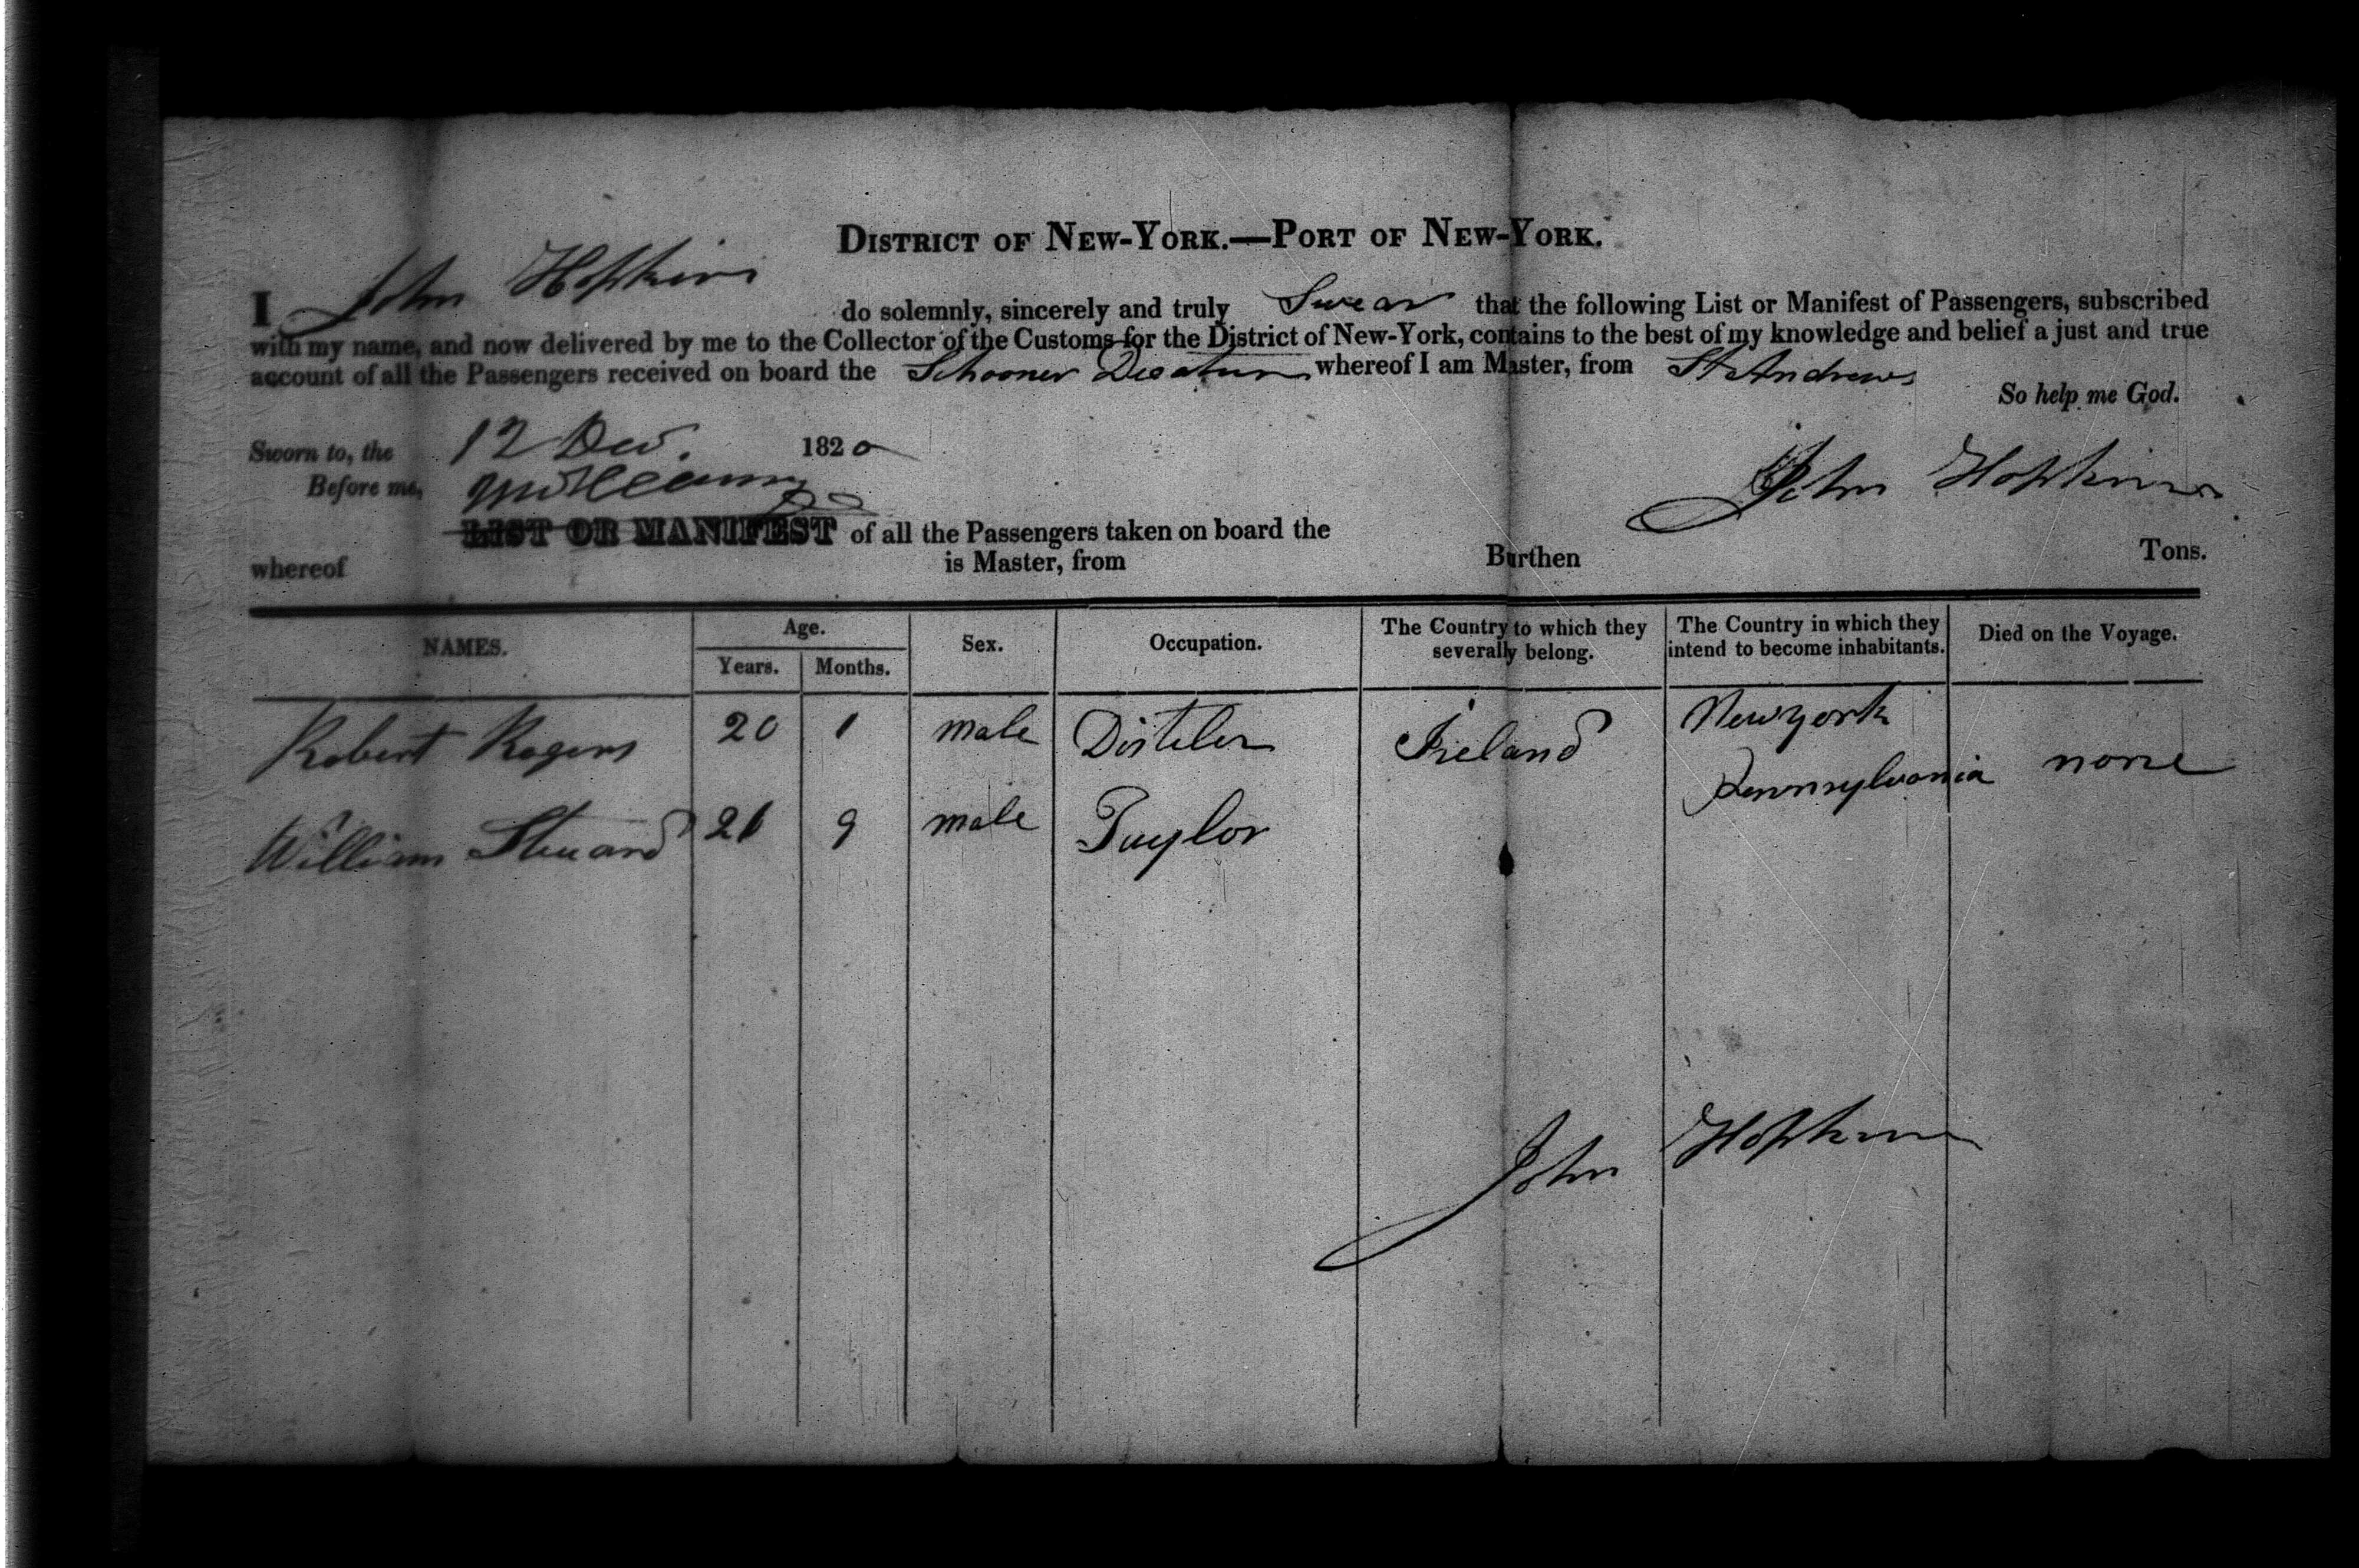 DISTRICT OF NEW-YORK.—PORT OF NEW-YORK.
I John Hopkins do solemnly, sincerely and truly Swear that the following List or Manifest of Passengers, subscribed
with my name, and now delivered by me to the Collector of the Customs for the District of New-York, contains to the best of my knowledge and belief a just and true
account of all the Passengers received on board the Schooner Decatur whereof I am Master, from St Andrews
So help me God.
Sworn to, the 12 Dec. 1820
Before me,
John Hopkins
LIST OR MANIFEST of all the Passengers taken on board the
whereof is Master, from Burthen Tons.
NAMES. Age. Years. Months. Sex. Occupation. The Country to which they severally belong. The Country in which they intend to become inhabitants. Died on the Voyage.
Robert Rogers 20 1 male Disteler Ireland Newyork
Pennsylvania none
William Steuard 21 9 male Taylor
John Hopkins